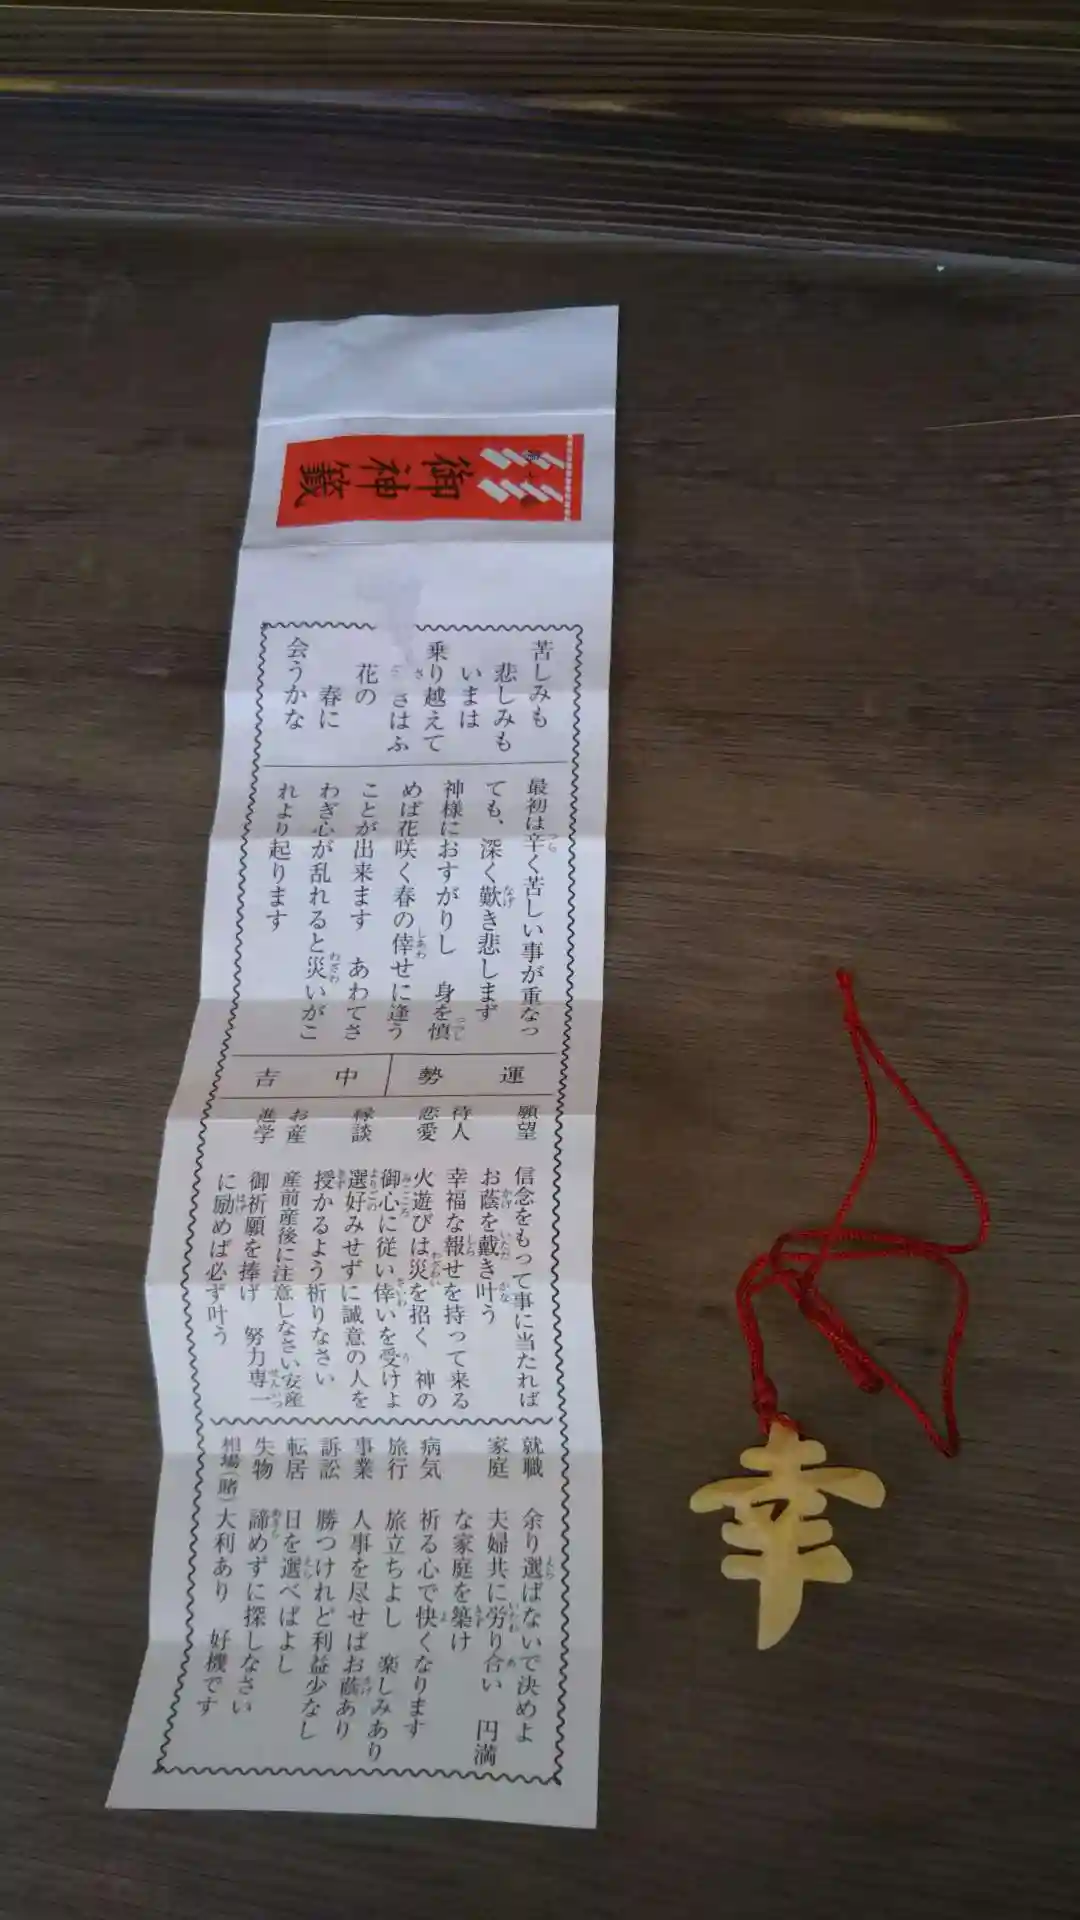 御神籤
苦しみも
悲しみも
いまは
乗り越えて
さはふ
花の
春に
会うかな
最初は辛く苦しい事が重なっ
ても、深く歎き悲しまず
神様におすがりし 身を慎
めば花咲く春の倖せに逢う
ことが出来ます あわてさ
わぎ心が乱れると災いがこ
れより起ります
運勢 中吉
願望 信念をもって事に当たれば
お蔭を戴き叶う
待人 幸福な報せを持って来る
恋愛 火遊びは災を招く 神の
御心に従い倖いを受けよ
縁談 選好みせずに誠意の人を
授かるよう祈りなさい
お産 産前産後に注意しなさい安産
進学 御祈願を捧げ 努力専一
に励めば必ず叶う
就職 余り選ばないで決めよ
家庭 夫婦共に労り合い 円満
な家庭を築け
病気 祈る心で快くなります
旅行 旅立ちよし 楽しみあり
事業 人事を尽せばお蔭あり
訴訟 勝つけれど利益少なし
転居 日を選べばよし
失物 諦めずに探しなさい
相場(賭) 大利あり 好機です
幸